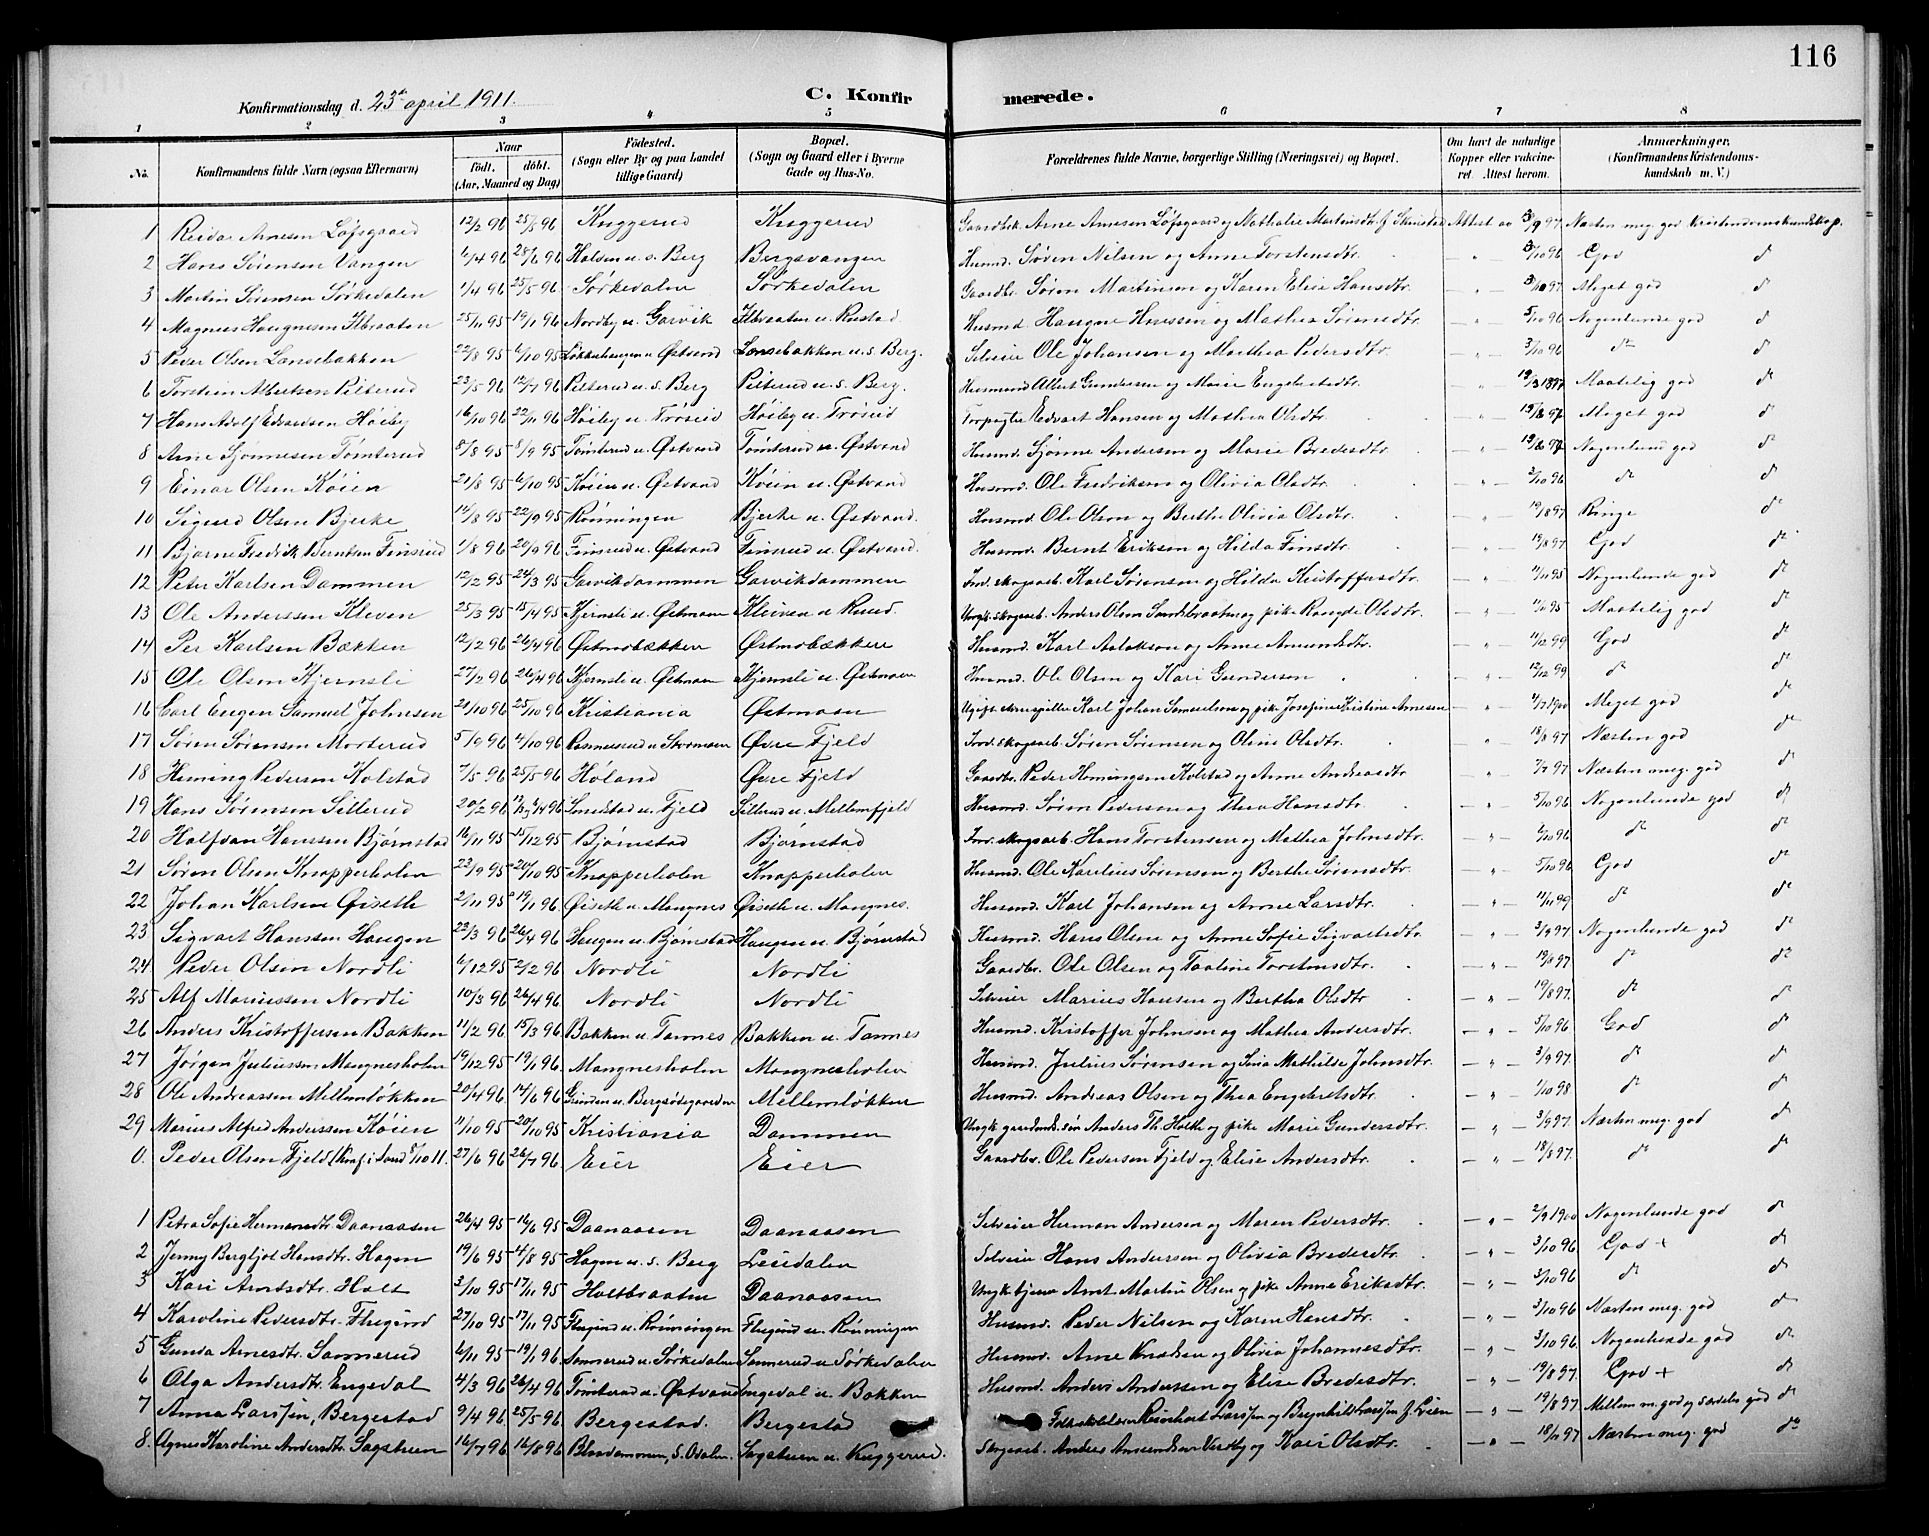 116
Konfirmationsdag d. 23de april 1911.
C. Konfirmerede.
1 2 3 4 5 6 7 8
No. Konfirmandens fulde Navn (ogsaa Efternavn) Naar født. døbt. (Aar, Maaned og Dag) Fødested. (Sogn eller By og paa Landet tillige Gaard) Bopæl. (Sogn og Gaard eller i Byerne Gade og Hus-No. Forældrenes fulde Navne, borgerlige Stilling (Næringsvei) og Bopæl. Om havt de naturlige Kopper eller vakcineret. Attest herom. Anmerkninger. (Konfirmandens Kristendomskundskab m. V.)
1 Reidar Arnesen Løfsgaard 12/2 96 25/5 96 Kuggerud Kuggerud Gaardbr. Arne Arnesen Løfsgaard og Mathalie Martinsdtr. f. Skinstad Attest av 3/9 97 Næsten meg. god Kristendomskundskap.
2 Hans Sørensen Vangen 6/4 96 28/6 96 Holden u. s. Berg Bergsvangen Husmd. Søren Nilsen og Anne Torstensdtr. " 3/10 96 God do
3 Martin Sørensen Sørkedalen 1/4 96 25/5 96 Sørkedalen Sørkedalen Gaardbr. Søren Martinsen og Karen Elise Hansdtr. " Meget god do
4 Magnus Haugnesen Ilbraaten 25/11 95 19/1 96 Nordby u. Garvik Ilbraaten u. Rustad Husmd. Haugne Hanssen og Mathea Sørensdtr. " 5/10 96 Nogenlunde god do
5 Peder Olsen Lansebakken 22/8 95 6/10 95 Løkkehaugen u. Østvand Lansebakken u. s. Berg. Selveier Ole Johansen og Marthea Pedersdtr. " 3/10 96 do do
6 Torstein Albertsen Pilterud 23/5 96 12/7 96 Pilterud u. s. Berg Pilterud u. s. Berg. Husmand Albert Gundersen og Marie Engebretsdtr. " Maatelig god do
7 Hans Adolf Edvardsen Høiby 16/10 96 22/11 96 Høiby u. Trøseid Høiby u. Trøseid Forpagter Edvart Hansen og Mathea Olsdtr. " Meget god do
8 Arne Sjønnesen Tømterud 8/8 95 8/9 95 Tømterud u. Østvand Tømterud u. Østvand Husmd. Sjønne Andersen og Marie Bredesdtr. " Nogenlund god do
9 Einar Olsen Køien 21/8 95 6/10 95 Køien u. Østvand Køien u. Østvand Husmd. Ole Fredriksen og Olivia Olsdtr. " 2/10 96 do do
10 Sigurd Olsen Bjerke 14/8 95 22/9 95 Rønningen Bjerke u. Østvand. Husmd. Ole Olsen og Berthe Olivia Olsdtr. " 19/8 97 Ringe do
11 Bjarne Fredrik Berntsen Finsrud 1/8 96 20/9 96 Finsrud u. Østvand Finsrud u. Østvand. Husmd. Bernt Eriksen og Hilda Finsdtr. " 19/8 97 God do
12 Peter Karlsen Dammen 12/2 95 24/3 95 Garvikdammen Garvikdammen Ind. skogsarb. Karl Sørensen og Hilda Kristoffersdtr. " 11/11 95 Nogenlunde god do
13 Ole Anderssen Kleven 25/3 95 15/4 95 Kjernsli u. Østmoen Kleiven u. Rusd. Ungk. skogsarb. Anders Olsen Sandsbraaten og pike Rangde Olsdtr. " 11/11 95 Maatelig god do
14 Per Karlsen Bækken 12/2 96 26/4 96 Østmobækken Østmobækken Husmd. Karl Aslaksen og Anne Amundsdtr. " 11/12 99 God do
15 Ole Olsen Kjernsli 27/2 96 26/4 96 Kjernsli u. Østmoen Kjernsli u. Østmoen Husmd. Ole Olsen og Kari Gundersen " 12/12 99 do do
16 Carl Eugen Samuel Johnsen 21/10 96 25/10 96 Kristiania Østmoen Ugift skuespiller Karl Johan Samuelsen og pike Josefine Kristine Arnesen " Meget god do
17 Søren Sørensen Morterud 5/9 96 4/10 96 Rasmusrud u. Stormoen Øvre Fjeld Ind. skogsarb. Søren Sørensen og Oline Olsdtr. " 18/8 97 Næsten god do
18 Heming Pedersen Kolstad 7/5 96 25/5 96 Høland Øvre Fjeld Gaardbr. Peder Hemingsen Kolstad og Anne Andreasdtr. " 7/7 97 Næsten meg. god do
19 Hans Sørensen Sillerud 20/2 96 6/4 96 Smedstad u. Fjeld Sillerud u. Mellemfjeld Husmd. Søren Pedersen og Thea Hansdtr. " 5/10 96 Nogenlunde god do
20 Halfdan Hanssen Bjørnstad 16/11 95 15/12 95 Bjørnstad Bjørnstad Ind. skogsarb. Hans Torstensen og Mathea Johnsdtr. " 6/10 96 do do
21 Søren Olsen Knapperholen 22/9 95 20/10 95 Knapperholen Knapperholen Husmd. Ole Karelius Sørensen og Berthe Sørensdtr. " 5/10 96 God do
22 Johan Karlsen Øiseth 2/11 95 19/1 96 Øiseth u. Mangnes Øiseth u. Mangnes. Husmd. Karl Johansen og Anne Larsdtr. " 11/11 99 do do
23 Sigvart Hanssen Haugen 22/3 96 26/4 96 Haugen u. Bjørnstad Haugen u. Bjørnstad Husmd. Hans Olsen og Anne Sofie Sigvartsdtr. " 3/9 97 Nogenlunde god do
24 Peder Olsen Nordli 6/12 95 2/2 96 Nordli Nordli Gaardbr. Ole Olsen og Taaline Torstensdtr. " 19/8 97 do do
25 Alf Mariussen Nordli 10/3 96 26/4 96 Nordli Nordli Selveier Marius Hansen og Bertha Olsdtr " 19/8 97. do do
26 Anders Kristoffersen Bakken 11/2 96 15/3 96 Bakken u. Tannes Bakken u. Tannes Husmd. Kristoffer Johnsen og Mathea Andersdtr. " 5/10 96 God do
27 Jørgen Juliussen Mangnesholen 19/12 95 19/1 96 Mangnesholen Mangnesholen Husmd. Julius Sørensen og Lina Mathilde Johnsdtr. " 3/9 97. do do
28 Ole Andreassen Mellemløkken 20/4 96 14/6 96 Grinden u. Bergsødegaarden Mellemløkken Husmd. Andreas Olsen og Thea Engebretsdtr. " 1/10 98 do do
29 Marius Alfred Anderssen Køien 11/10 95 20/10 95 Kristiania Dammen Ungk. gaardmds. søn Anders Th. Holth og pike Marie Gundersdtr. " 3/9 97. Næsten meg. god do
0. Peder Olsen Fjeld (Konf. i Sand 8/10 11. 27/6 96 26/7 96 Eier Eier Gaardbr. Ole Pedersen Fjeld og Elise Andersdtr. " 18/8 97. do do
1 Petra Sofie Hermansdtr. Daanaasen 26/4 95 16/6 95 Daanaasen Daanaasen Selveier Herman Andersen og Maren Pedersdtr. " 2/9 1900 Nogenlunde god do
2 Jenny Bergljot Hansdtr. Hagen 19/6 95 4/8 95 Hagen u. s. Berg Leirdalen Selveier Hans Andersen og Olivia Bredesdtr. " 3/10 96 God + do
3 Kari Arntsdtr. Holt 3/10 95 17/11 95 Holtbraaten Daanaasen Ungk. tjener Arnt Martin Olsen og pike Anne Eriksdtr. " 3/10 96 do do
4 Karoline Pedersdtr. Flugind 27/10 95 17/11 95 Flugind u. Rønningen Flugind u. Rønningen Husmd. Peder Nilsen og Karen Hansdtr. " 3/10 96 Næsten meg. god do
5 Gunda Arnesdtr. Sannerud 6/11 95 19/1 96 Sannerud u. Sørkedalen Sannerud u. Sørkedalen Husmd. Arne Knudsen og Olivia Johannesdtr. " 3/10 96. Nogenlunde god do
6 Olga Andersdtr. Engedal 4/3 96 26/4 96 Tømterud u. Østvand Engedal u. Bakken Husmd. Anders Anderssen og Elise Bredesdtr. " 19/8 97. God + do
7 Anna Larssen, Bergestad 9/4 96 25/5 96 Bergestad. Bergestad Folkeskolelærer Reinhart Larssen og Bergnhild Larssen f. Lien " 19/8 97 Mellem m. god og særdeles god do
8. Agnes Karoline Andersdtr. Sagstuen 16/7 96 16/8 96 Bladammen, S. Odalen. Sagstuen u. Kuggerud. Skogsarb. Anders Amundsen Vestby og Kari Olsdtr. " 18/11 97 Næsten meg. god do